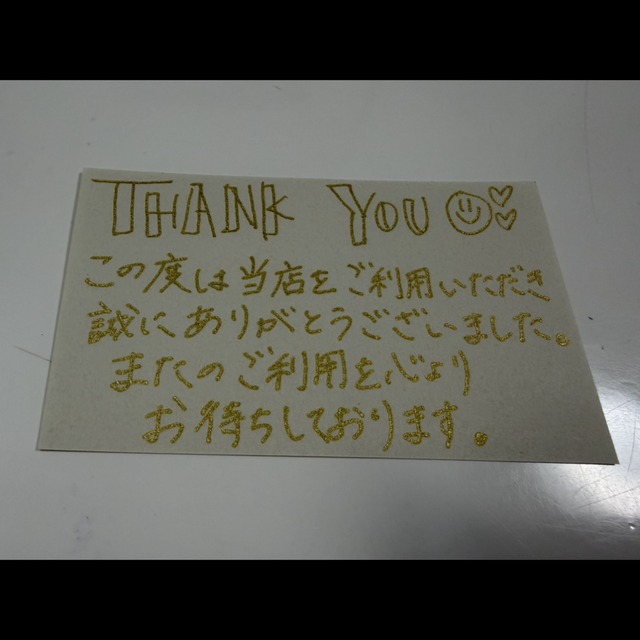 THANK YOU
この度は当店をご利用いただき
誠にありがとうございました。
またのご利用を心より
お待ちしております。